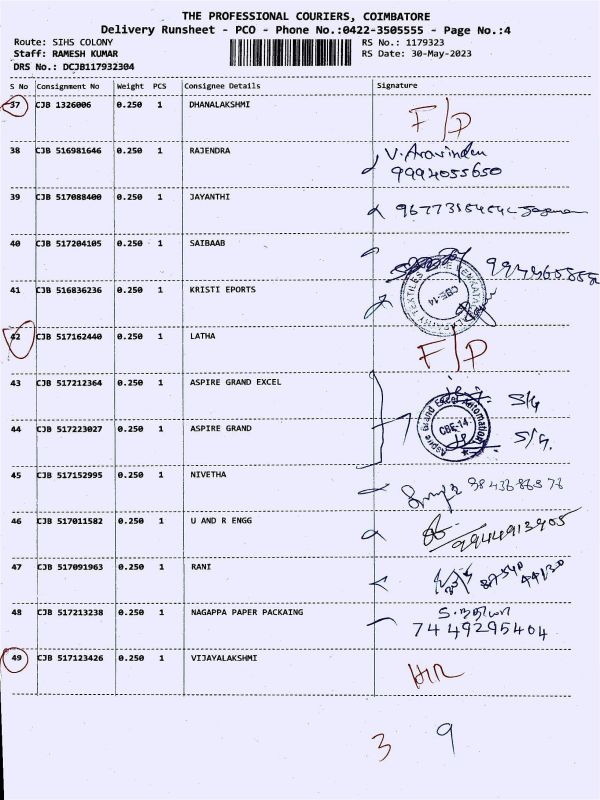 THE PROFESSIONAL COURIERS, COIMBATORE
Delivery Runsheet - PCO - Phone No.:0422-3505555 - Page No.:4
Route: SIHS COLONY RS No.: 1179323
Staff: RAMESH KUMAR RS Date: 30-May-2023
DRS No.: DCJB117932304
S No Consignment No Weight PCS Consignee Details Signature
37 CJB 1326006 0.250 1 DHANALAKSHMI F/D
38 CJB 516981646 0.250 1 RAJENDRA V. Aravinden
9994055650
39 CJB 517088400 0.250 1 JAYANTHI
40 CJB 517204105 0.250 1 SAIBAAB
41 CJB 516836236 0.250 1 KRISTI EPORTS CBE-14
42 CJB 517162440 0.250 1 LATHA F/D
43 CJB 517212364 0.250 1 ASPIRE GRAND EXCEL S/G
Aspire Grand Excel Automation
CBE-14
44 CJB 517223027 0.250 1 ASPIRE GRAND S/G.
45 CJB 517152995 0.250 1 NIVETHA
46 CJB 517011582 0.250 1 U AND R ENGG
9944913905
47 CJB 517091963 0.250 1 RANI
48 CJB 517213238 0.250 1 NAGAPPA PAPER PACKAING
7449295404
49 CJB 517123426 0.250 1 VIJAYALAKSHMI
3 9